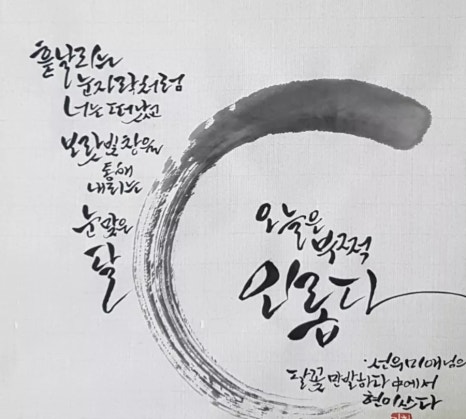 흩날리는
눈자락처럼
너는 떠났고
보랏빛 창을
통해
내리는
눈 맞은
달
오늘은
부쩍
외롭다
선우미애님의
달꽃 만발하다 中에서
현이쓰다